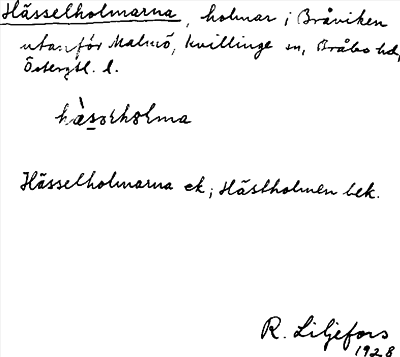 Hässelholmarna, holmar i Bråviken
utanför Malmö, Kvillinge sn, Bråbo hd,
Östergtl. l.
hàsəlholma
Hässelholmarna ek; Hästholmen bek.
R. Liljefors
1928